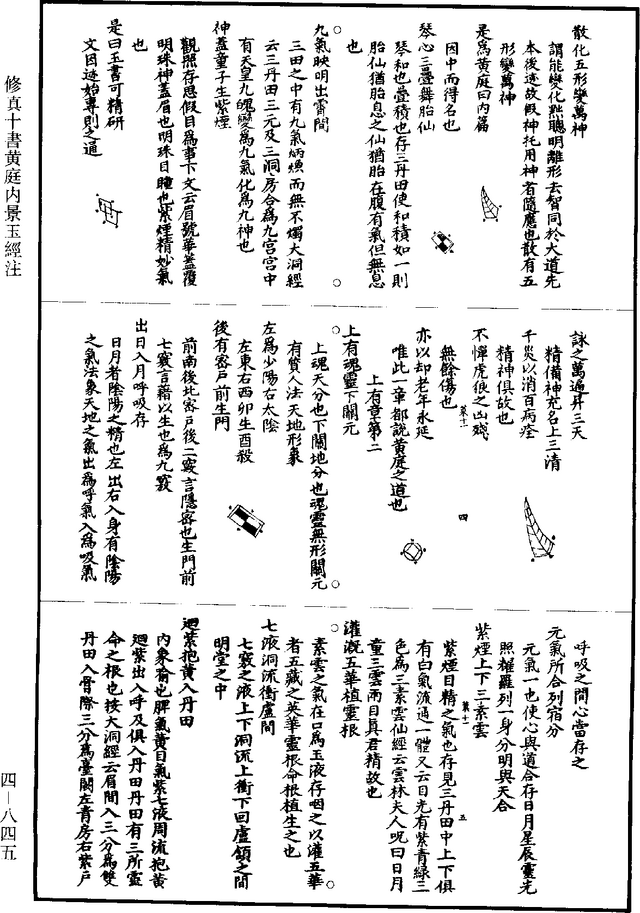 修真十書黃庭內景玉經注
四—八四五
散化五形變萬神
謂能變化黜聰明離形去智同於大道先
本後迹故假神托用神者隨應也散有五
形變萬神
是爲黃庭曰內篇
因中而得名也
琴心三疊舞胎仙
琴和也疊積也存三丹田使和積如一則
胎仙猶胎息之仙猶胎在腹有氣但無息
也
九氣映明出霄間
三田之中有九氣炳煥而無不燭大洞經
云三丹田三元及三洞房合爲九宮宮中
有天皇九魄變爲九氣化爲九神也
神蓋童子生紫煙
觀照存思假目爲事下文云眉號華蓋覆
明珠神蓋眉也明珠目瞳也紫煙精妙氣
也
是曰玉書可精研
文因迹始專則之通
詠之萬遍昇三天
精備神充名上三清
千災以消百病痊
精神俱故也
不憚虎狼之凶殘
無餘傷也
第十一
四
亦以却老年永延
唯此一章都說黃庭之道也
上有章第二
上有魂靈下關元
上魂天分也下關地分也魂靈無形關元
有質人法天地形象
左爲少陽右太陰
左東右西卯生酉殺
後有密戶前生門
前南後北密戶後二竅言隱密也生門前
七竅言藉以生也爲九竅
出日入月呼吸存
日月者陰陽之精也左出右入身有陰陽
之氣法象天地之氣出爲呼氣入爲吸氣
呼吸之間心當存之
元氣所合列宿分
元氣一也使心與道合存日月星辰靈光
照耀羅列一身分明與天合
紫煙上下三素雲
第十一
五
紫煙目精之氣也存見三丹田中上下俱
有白氣流通一體又云目光有紫青綠三
色爲三素雲仙經云雲林夫人呪曰日月
童三雲兩目眞君精故也
灌漑五華植靈根
素雲之氣在口爲玉液存咽之以灌五華
者五藏之英華靈根命根植生之也
七液洞流衝廬間
七竅之液上下洞流上衝下回廬頟之間
明堂之中
迴紫抱黃入丹田
內象喻也脾氣黃目氣紫七液周流抱黃
迴紫出入呼及俱入丹田丹田有三所靈
命之根也按大洞經云眉間入三分爲雙
丹田入骨際三分爲臺闕左青房右紫戶